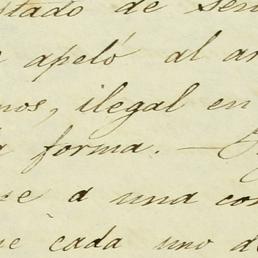 stado de sen
e apeló al ar
nos, ilegal en
a forma. —
ue a una con
ue cada uno de